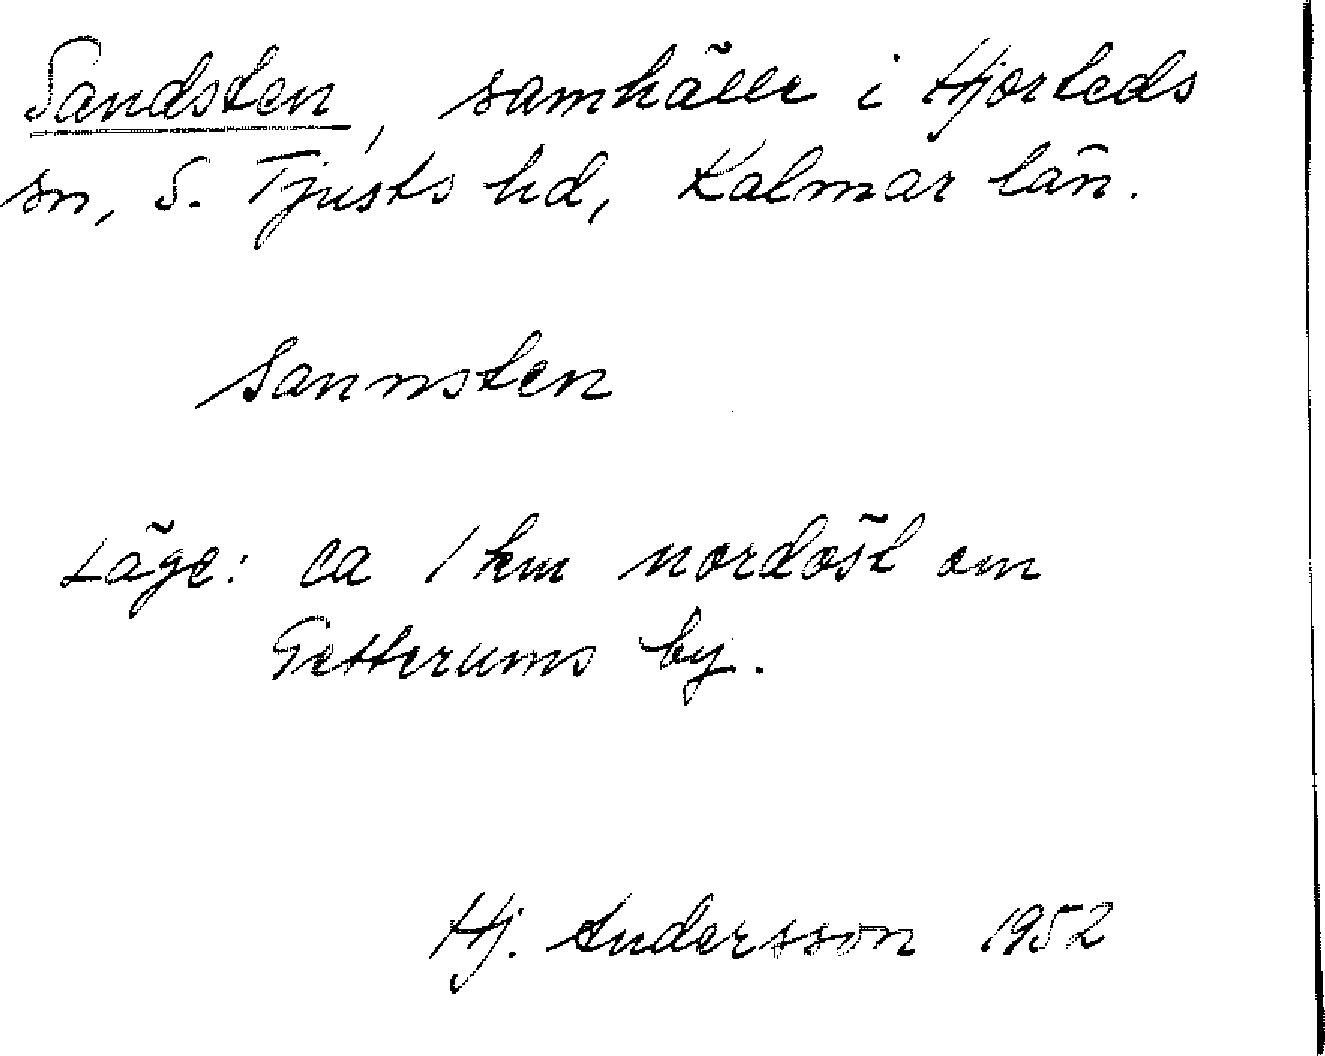 Sandsten, samhälle i Hjorteds
sn, S. Tjusts hd, Kalmar län.
Sannsten
Läge: ca 1 km nordöst om
Getterums by.
Hj. Andersson 1952